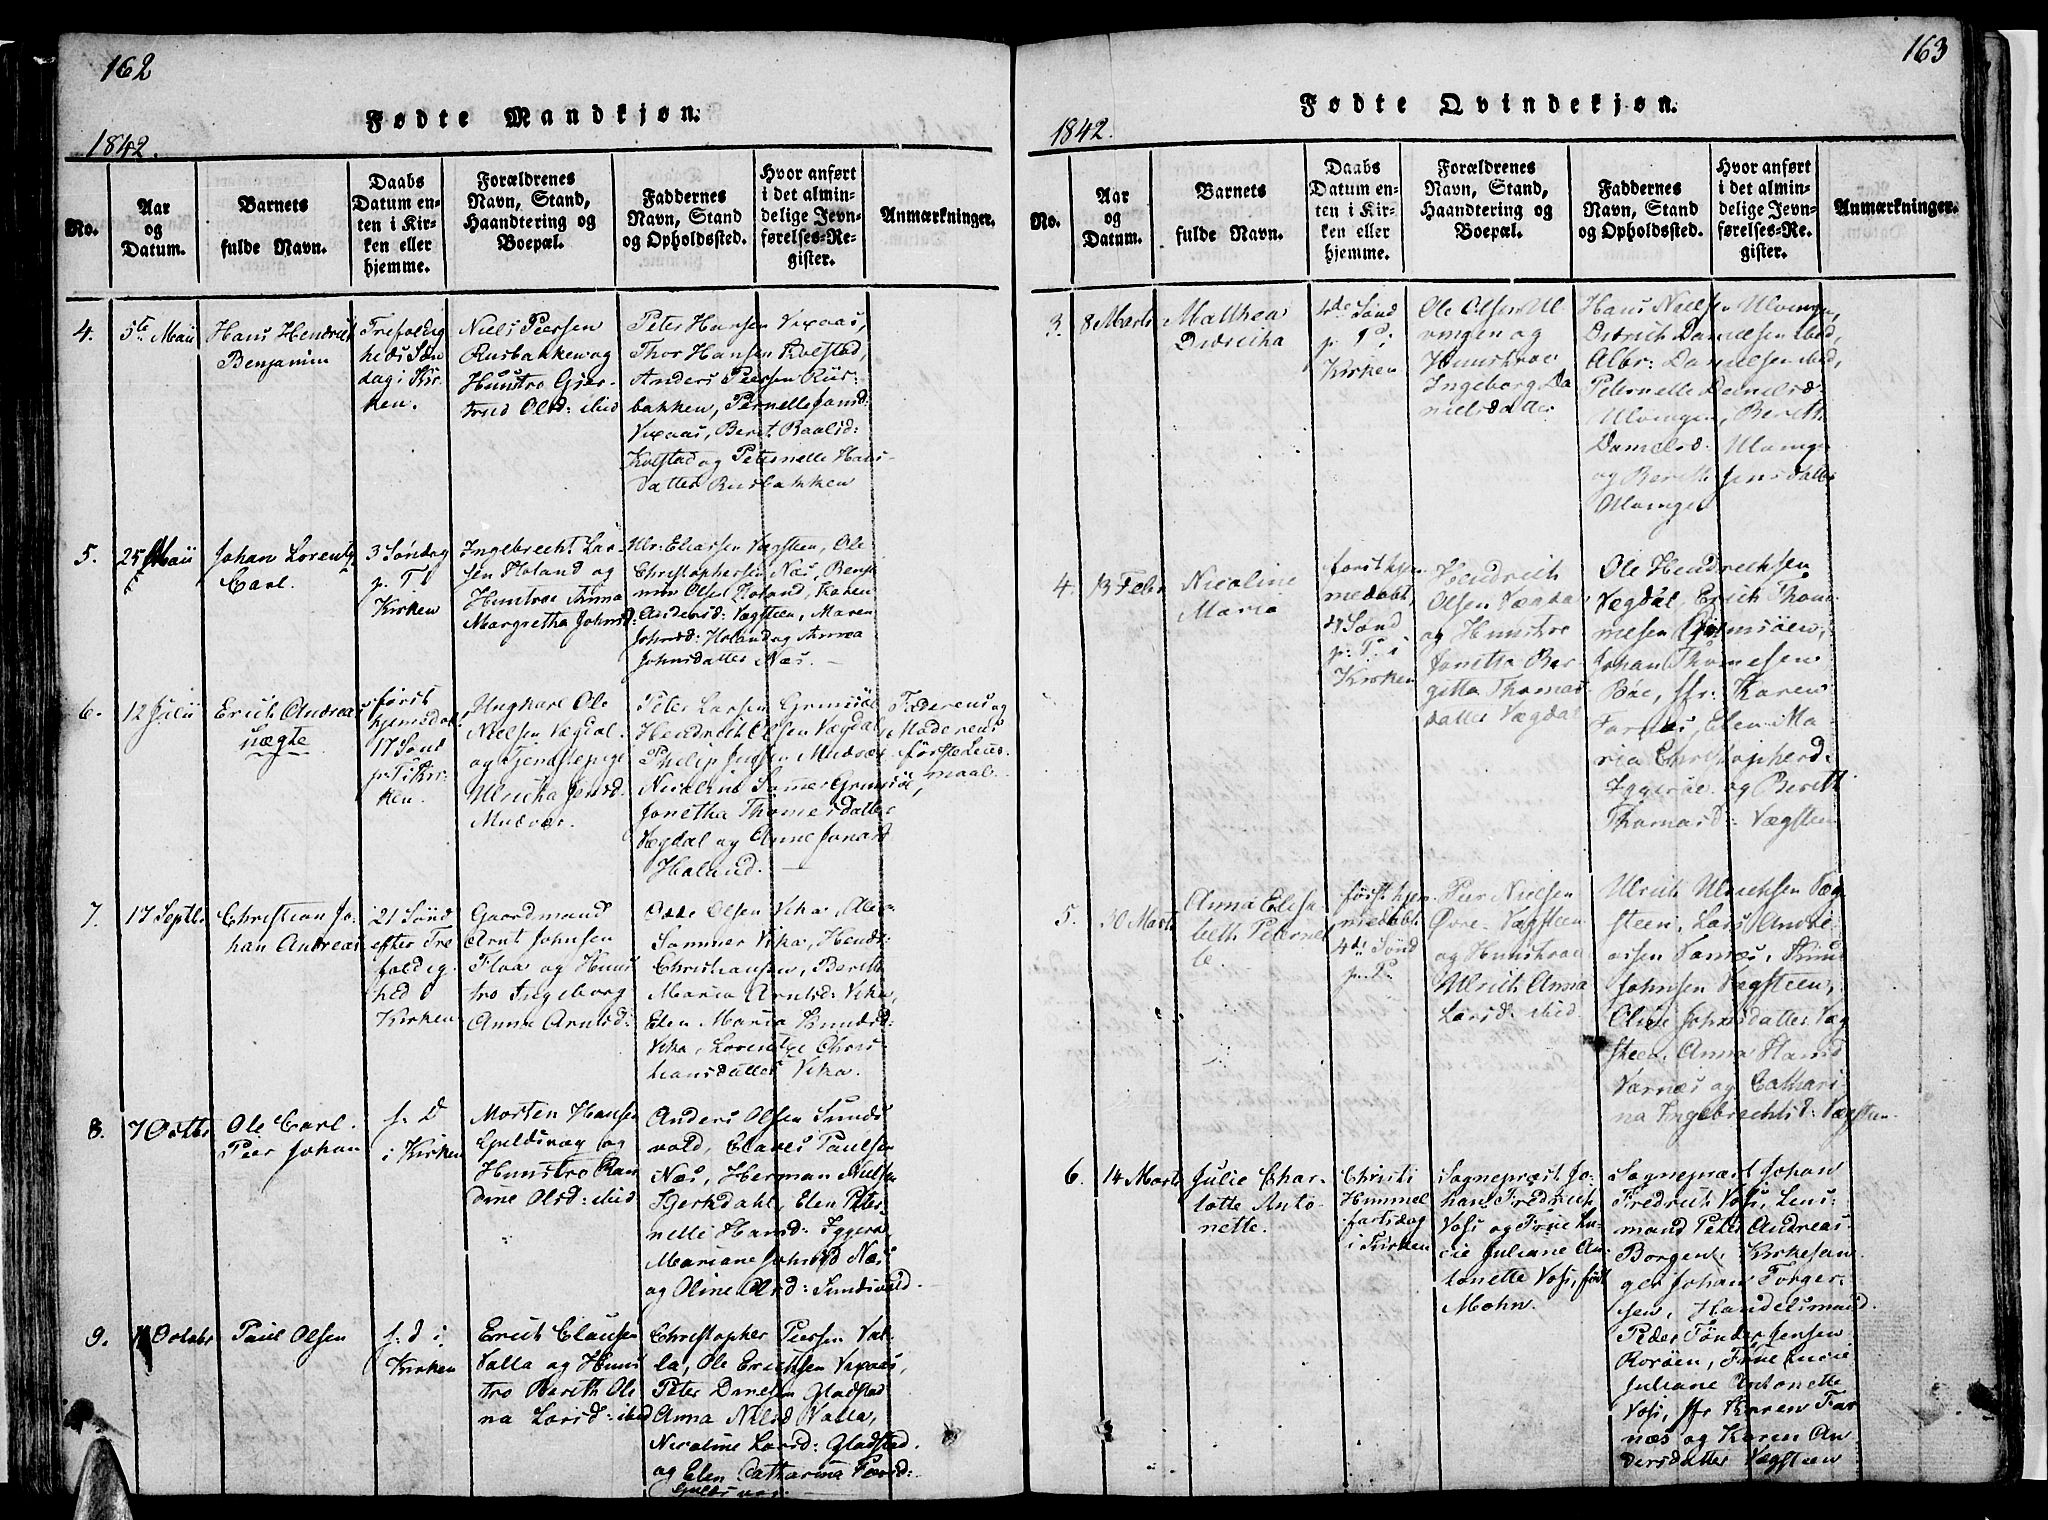 162
Fødte Mandkjøn.
1842.
No.
Aar
og
Datum.
Barnets
fulde Navn.
Daabs
Datum en-
ten i Kir-
ken eller
hjemme.
Forældrenes
Navn, Stand,
Haandtering og
Boepæl.
Faddernes
Navn, Stand
og Opholdssted.
Hvor anført
i det almin-
delige Jevn-
førelses-Re-
gister.
Anmærkninger.
4.
5te Maii
Hans Hendrich
Benjamin
Trefoldig
heds Søn
dag i Kir-
ken.
Niels Peersen
Rusbakken og
Hustro Gier-
trud Olsd: ibid
Peter Hansen Vixaas,
Thor Hansen Kolstad,
Anders Peersen Rus-
bakken, Pernelle Hansd:
Vixaas, Beret Paalsd:
Kolstad og Peternelle Hans-
datter Rusbakken
5.
25 Maii
Johan Lorentz
Carl.
3 Søndag
p. T. i
Kirken
Ingebrecht Lar-
sen Holand og
Hustroe Anna
Margretha Johnsd:
Ulr: Eliassen Vægsteen, Ole
Christophersen Næs, Benja
min Olsen Holand, Karen
Andersd: Vægsteen, Maren
Johnsd: Holand og Anna
Johnsdatter Næs. —
6.
12 Julii
Erich Andreas
uægte
først
hjemedøbt
17 Sønd
p. T. i Kir-
ken.
Ungkarl Ole
Nielsen Vægdal
og Tjenstepige
Ulricha Jensd.
Mudvær.
Peter Larsen Grimsöe
Hendrich Olsen Vægdal
Philip Jensen Mudvær
Nicoline Sommer Grimsöe,
Jonetha Thomesdatter
Vægdal og Anne Jonasd
Holand. —
Faderens og
Moderens
første Leier-
maal.
7.
17 Septbr
Christian Jo-
han Andreas
21 Sønd
efter Tre
foldig
hed i
Kirken
Gaardmand
Arnt Johnsen
Floa og Hus
tro Ingeborg
Anna Arntsd:
Olsen Vika,
Sommer Vika, Hendr:
Christiansen, Berith
Maria Arntsd: Vika,
Elen Maria Knudsd:
Vika, Lorentze Chris-
tiansdatter Vika.
8.
7 Octbr
Ole Carl
Peer Johan
s: D
i Kirken
Morten Hansen
Guldsvaag og
Hustro Ran
dine Olsd: ibid
Anders Olsen Sunds
vold, Claus Paulsen
Næs, Herman Nielsen
Bjerkdahl, Elen Peter-
nelle Hansd: Iggerøe
Mariane Johnsd Næs
og Oline Olsd: Sundsvold
9.
Octobr
Paul Olsen
s: d i
Kirken
Erich Clausen
Valla og Hus
tro Berith Ole
na Larsd: ibid
Christopher Peersen Val-
la, Ole Erichsen Vixaas,
Peter Danielsen Gladstad
Anna Nilsd Valla,
Nicoline Larsd: Gladstad
og Elen Catharina Peersd:
Guldsvaag
163
Fødte Qvindekjøn.
1842.
No.
Aar
og
Datum.
Barnets
fulde Navn.
Daabs
Datum en-
ten i Kir-
ken eller
hjemme.
Forældrenes
Navn, Stand,
Haandtering og
Boepæl.
Faddernes
Navn, Stand
og Opholdssted.
Hvor anført
i det almin-
delige Jevn-
førelses-Re-
gister.
Anmærkninger.
3.
8 Marts
Mathea
Didricha
4de Sønd
p. P. i
Kirken
Ole Olsen Ul
vingen og
Hunstroe
Ingeborg Da
nielsdatter
Hans Nielsen Ulvingen,
Didrich Danielsen ibid,
Albr: Danielsen ibid,
Peternelle Danielsd
Ulvingen, Berith
Danielsd. Ulvinge
og Berith Jensdatter
Ulvingen
4.
13 Febr
Nicoline
Maria
først hje
medøbt,
4 Sønd
p: P. i
Kirken
Hendrich
Olsen Vægdal
og Hunstroe
Jonetta Ber
gitta Thomas
datter Vægdal
Ole Hendrichsen
Vægdal, Erich Thom
mesen Grimsöen,
Johan Thomesen
Böe, Jfr: Karen
Farnæs, Elen Ma-
ria Christophersd:
Iggeröe og Berith
Thomasd: Vægsteen
5.
30 Marts
Anna Elisa
beth Peternel
le.
først hjem
medøbt
4de Sønd
p. P.
Peer Nielsen
Øvre-Vægsteen
og Hunstroe
Ulrich Anna
Larsd: ibid.
Ulrich Ulrichsen Væg
steen, Lars Andre
asen Varnæs, Knud
Johnsen Vægsteen,
Oline Johnsdatter Væg
steen, Anna Hansd
Varnæs og Cathari
na Ingebrechtsd: Vægsteen.
6.
14 Marts
Julie Char-
lotte Anto-
nette.
Christi
Himmel
fartsdag
i Kirken
Sognepræst Jo-
han Fredrich
Vosi og Frue Lu-
cie Juliane An-
tonette Vosi, født
Mohn.
Sognepræst Johan
Fredrich Vosi, Lens-
mand Peter Andreas
Borgen, Kirkesan-
ger Johan Torger-
sen, Handelsmand
Peder Tønder Jensen
Rorøen, Frue Lucie
Juliane Antonette
Vosi, Jfr Karen Far
næs og Karen An
dersdatter Vægsteen